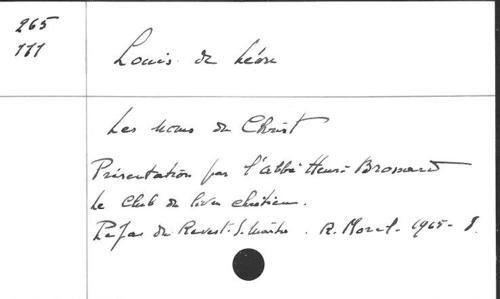 265
111
Louis de Léon
Les noms du Christ
Présentation par l'abbé Henri Brossard
Le Club du livre chrétien.
Le Jas du Revest-S.-Martin. R. Morel. 1965-